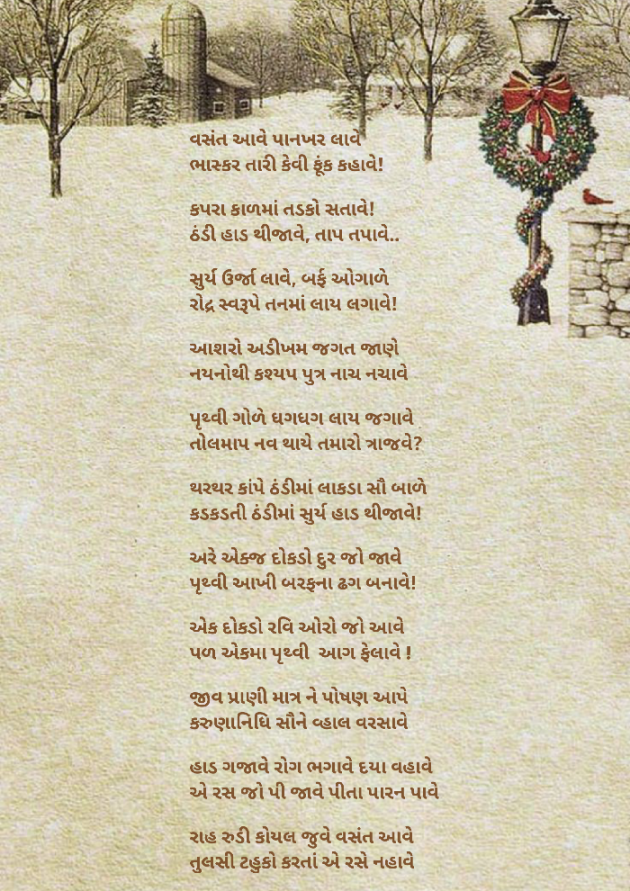 વસંત આવે પાનખર લાવે
ભાસ્કર તારી કેવી ફૂંક કહાવે!
કપરા કાળમાં તડકો સતાવે!
ઠંડી હાડ થીજાવે, તાપ તપાવે..
સુર્ય ઉર્જા લાવે, બર્ફ ઓગાળે
રોદ્ર સ્વરૂપે તનમાં લાય લગાવે!
આશરો અડીખમ જગત જાણે
નયનોથી કશ્યપ પુત્ર નાચ નચાવે
પૃથ્વી ગોળે ધગધગ લાય જગાવે
તોલમાપ નવ થાયે તમારો ત્રાજવે?
થરથર કાંપે ઠંડીમાં લાકડા સૌ બાળે
કડકડતી ઠંડીમાં સુર્ય હાડ થીજાવે!
અરે એક્જ દોકડો દુર જો જાવે
પૃથ્વી આખી બરફના ઢગ બનાવે!
એક દોકડો રવિ ઓરો જો આવે
પળ એકમા પૃથ્વી આગ ફેલાવે !
જીવ પ્રાણી માત્ર ને પોષણ આપે
કરુણાનિધિ સૌને વ્હાલ વરસાવે
હાડ ગજાવે રોગ ભગાવે દયા વહાવે
એ રસ જો પી જાવે પીતા પારન પાવે
રાહ રુડી કોયલ જુવે વસંત આવે
તુલસી ટહુકો કરતાં એ રસે નહાવે